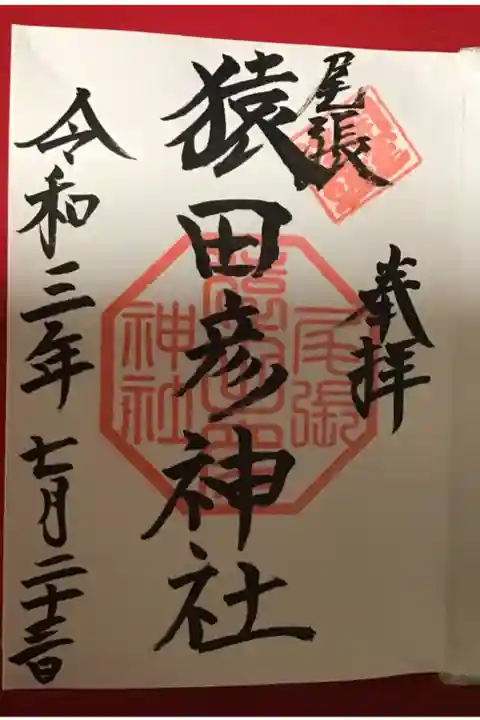 尾張
奉拝
猿田彦神社
尾張
神社
令和三年七月二十三日